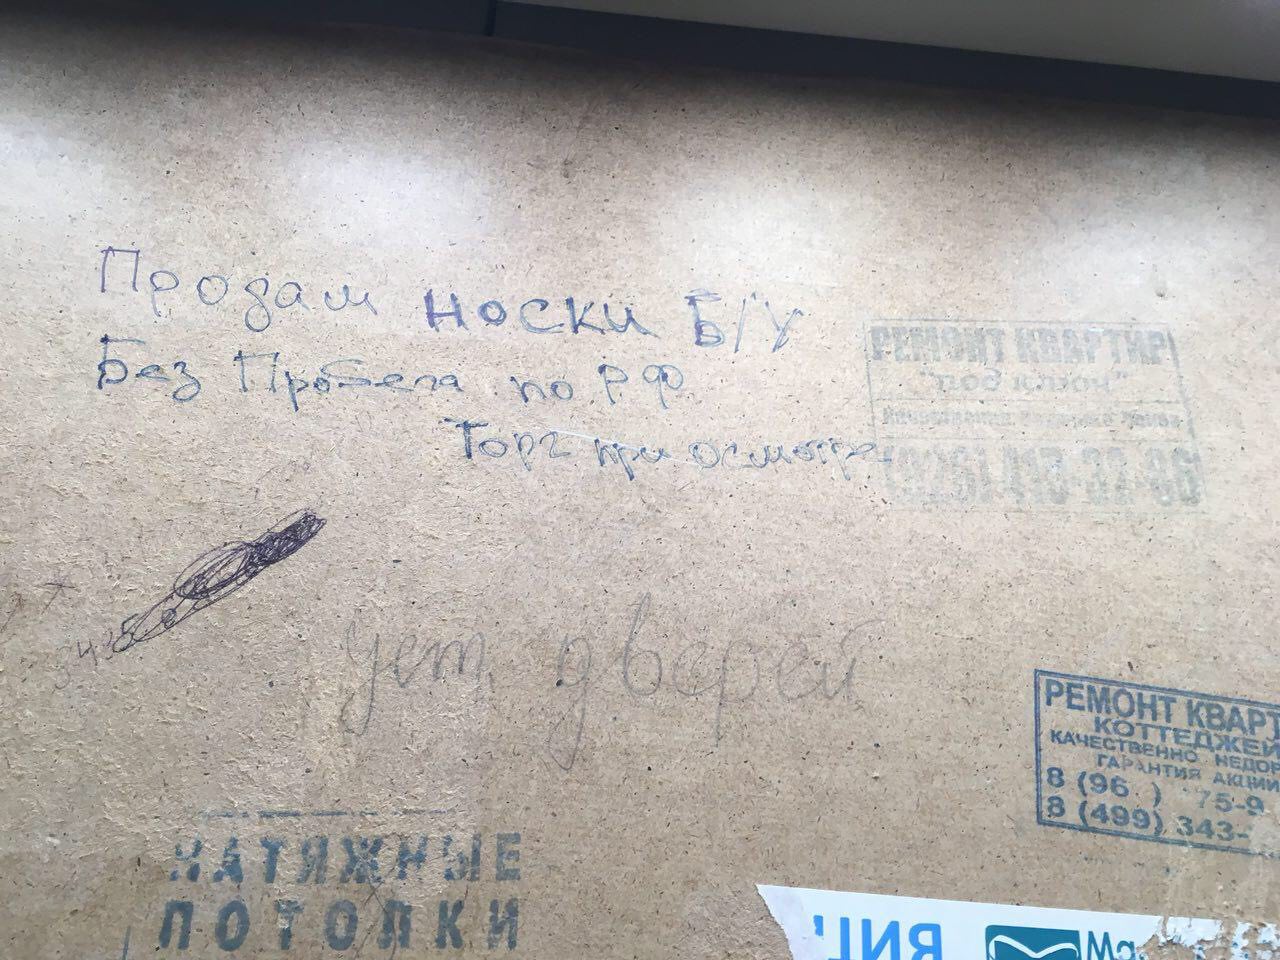 Продам носки Б/У
Без Пробега по РФ
Торг при осмотре
РЕМОНТ КВАРТИР
"под ключ"
(926) 413-32-86
уст. дверей
РЕМОНТ КВАРТ
КОТТЕДЖЕЙ
КАЧЕСТВЕННО НЕДОР
ГАРАНТИЯ АКЦИИ
8 (96 ) 75-9
8 (499) 343-
НАТЯЖНЫЕ
ПОТОЛКИ